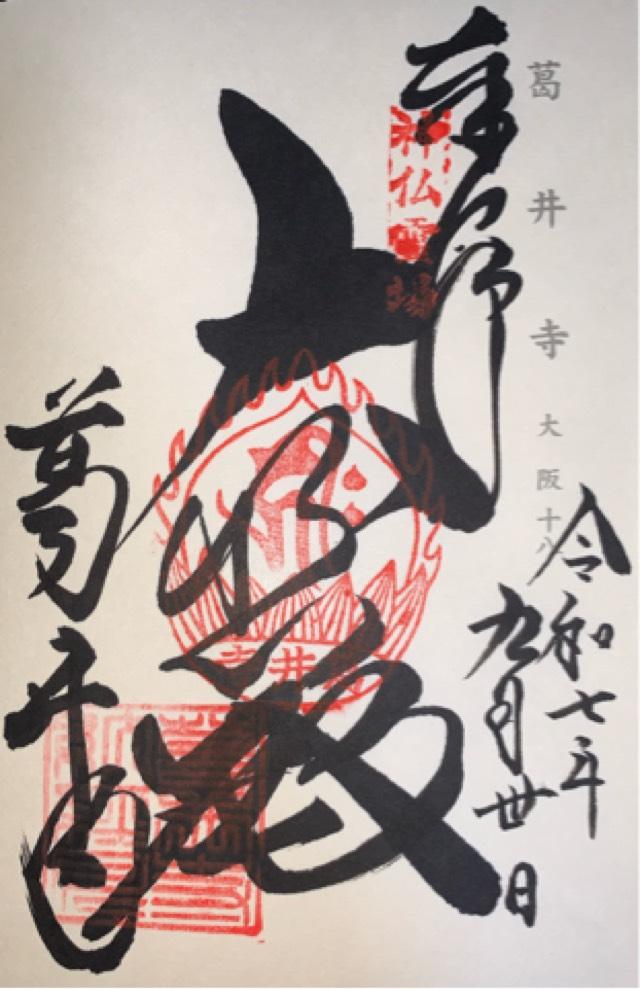 葛井寺 大阪十八
奉拝
神仏霊場
令和七年
九月丗日
大悲殿
葛井寺